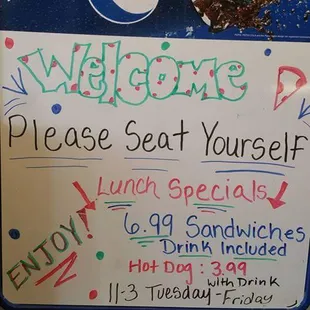 Welcome
Please Seat Yourself
Lunch Specials
6.99 Sandwiches
Drink Included
ENJOY!
Hot Dog : 3.99
with Drink
11-3 Tuesday - Friday